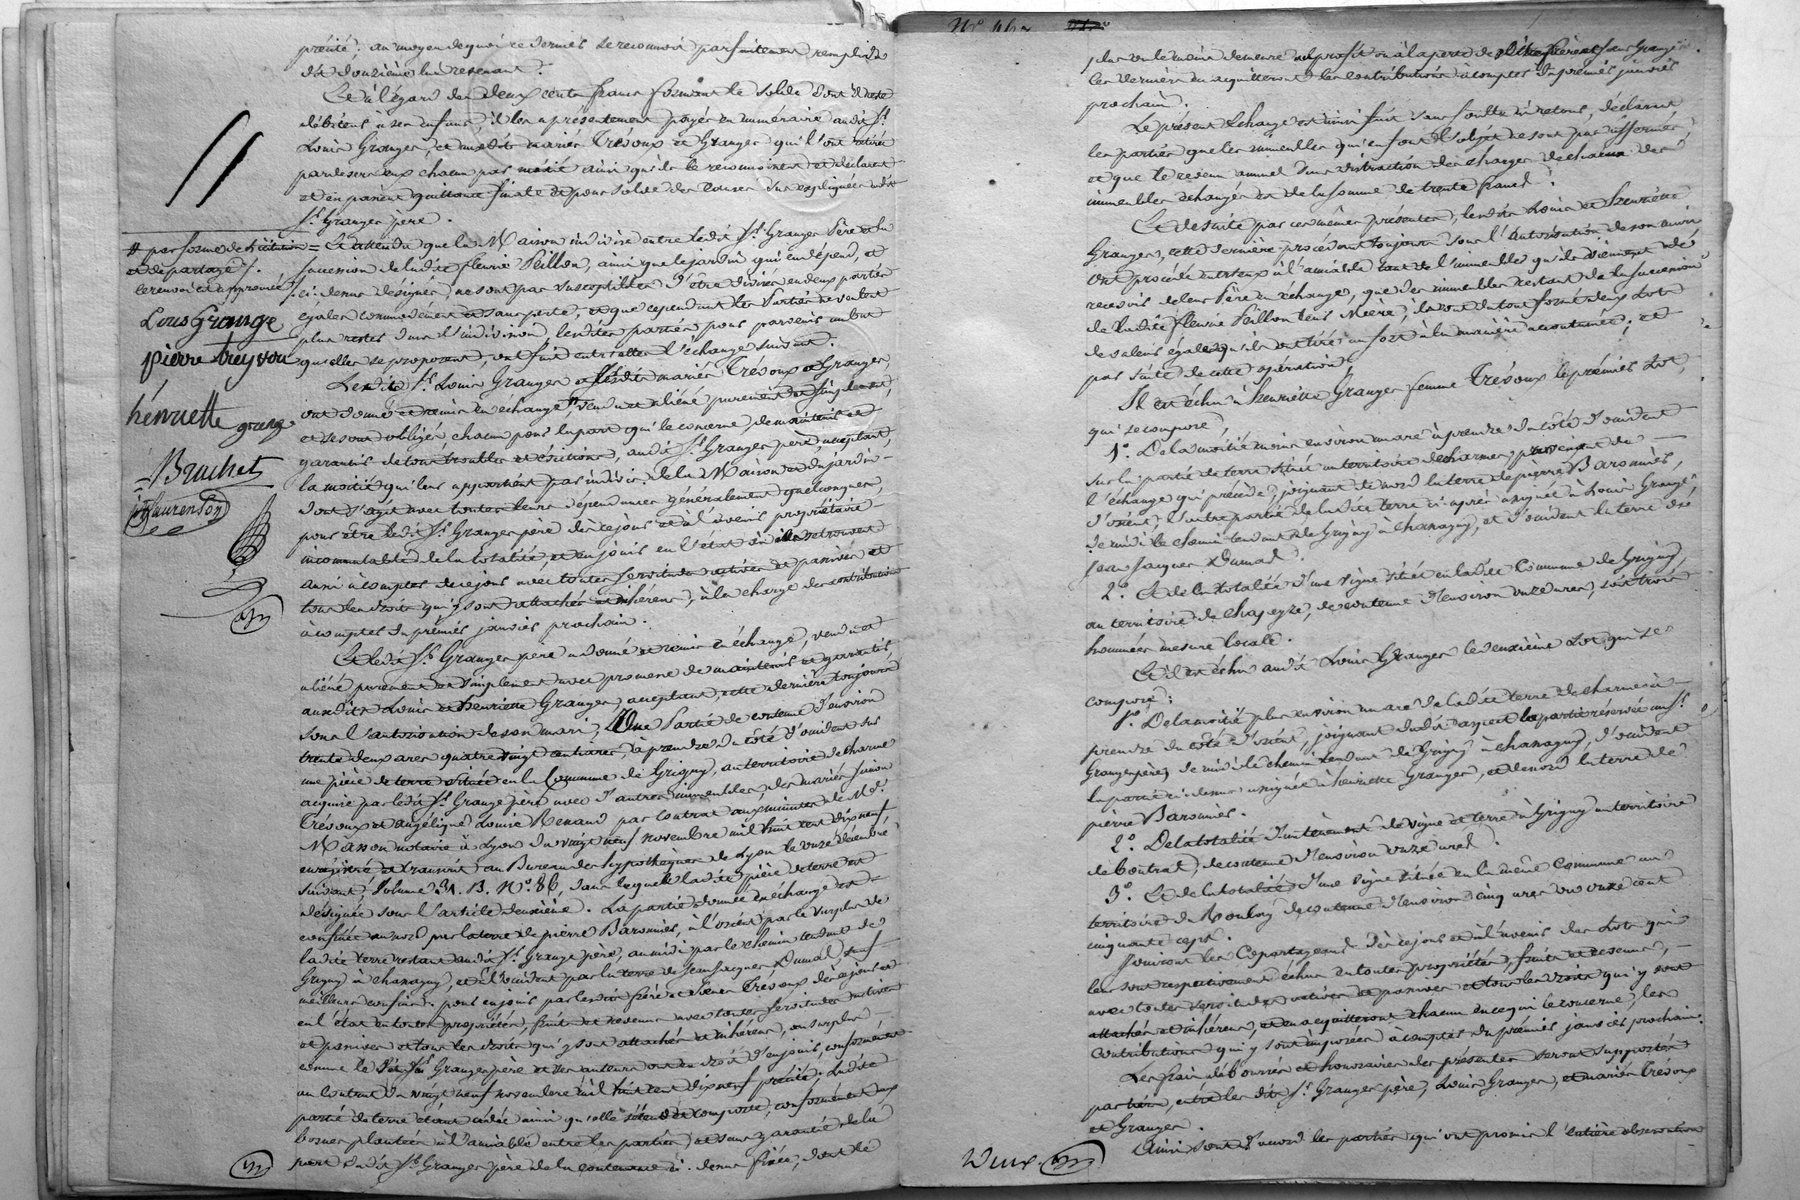 précité, au moyen de quoi ce dernier se reconnoit parfaitement rempli du
dit douzième lui revenant.
Et à l'égard des deux cents francs formant le solde dont il reste
débiteur à ses enfans, il les a présentement payés en numéraire audit Sr.
Louis Granger, et auxdits mariés Trévoux et Granger qui l'ont retiré
par devers eux chacun par moitié ainsi qu'ils le reconnoissent et déclarent
et en passent quittance finale et pour solde des causes sus expliquées audit
Sr. Granger père.
# par forme de licitation
et de partage /.
ce renvoi est approuvé
Louis Grange
pierre treyvou
henriette grange
Bruchet
Laurenson
= Et attendu que la Maison indivise entre ledit Sr. Granger Père et la
succession de ladite fleurie Peillon, ainsi que le jardin qui en dépend, et
ci-dessus désignés, ne sont pas susceptibles d'être divisés en deux parties
égales commodément et sans perte, et que cependant les Parties ne veulent
plus rester dans l'indivision, lesdites parties pour parvenir au but
qu'elles se proposent, ont fait entr'elles l'échange suivant.
Lesdits Sr. Louis Granger et lesdits mariés Trévoux et Granger,
ont donné et remis en échange #, vendu et aliéné purement et simplement,
et se sont obligés, chacun pour la part qui le concerne, de maintenir et
garantir de tous troubles et évictions, audit Sr. Granger père, acceptant,
la moitié qui leur appartient par indivis de la Maison et du jardin
dont s'agit avec toutes leurs dépendances généralement quelconques,
pour être ledit Sr. Granger père dès ce jour et à l'avenir propriétaire
incommutable de la totalité, et en jouir en l'état où ils se trouvent
aussi à compter de ce jour avec toutes servitudes actives et passives et
tous les droits qui y sont attachés et inhérens, à la charge des contributions
à compter du premier janvier prochain.
Et ledit Sr. Granger père a donné et remis en échange, vendu et
aliéné purement et simplement avec promesse de maintenir et garantir,
auxdits Louis et henriette Granger, acceptant, cette dernière toujours
sous l'autorisation de son mari, Une Partie de contenue d'environ
trente deux ares quatre vingt centiares, à prendre du côté d'occident sur
une pièce de terre située en la Commune de Grigny, au territoire de charme
acquise par ledit Sr. Grange père avec d'autres immeubles, des mariés simon
Trévoux et angélique Louise Renaud par contrat aux minutes de Me.
Masson notaire à Lyon du vingt neuf novembre mil huit cent dix neuf
enregistré et transcrit au Bureau des hypothèques de Lyon le onze décembre
suivant, Volume 31. B. No. 86, dans lequel ladite pièce de terre est
désignée sous l'article deuxième. La partie donnée en échange est
confinée au nord par la terre de pierre Baronnier, à l'orient par le surplus de
ladite terre restant audit Sr. Grange père, au midi par le chemin tendant de
Grigny à chanagny, et à l'occident par la terre de Jean Jacques Dumas, sauf
meilleurs confins; pour en jouir par lesdits frère et soeur Trévoux dès ce jour et
en l'état en toutes propriétés, fruits et revenus avec toutes servitudes actives
et passives et tous les droits qui y sont attachés et inhérens, au surplus
comme le dit Sr. Granger père et ses auteurs ont eu droit d'en jouir, conformément
au contrat du vingt neuf novembre mil huit cent dix neuf précité. Ladite
partie de terre étant cédée ainsi qu'elle s'étend et comporte, conformément aux
bornes plantées à l'amiable entre les parties, et sans garantie de la
part dudit Sr. Granger père de la contenance ci-dessus fixée, dont le
plus ou le moins demeure au profit ou à la perte des dits frère et soeur Granger.
Ces derniers en acquitteront les contributions à compter du premier janvier
prochain.
Le présent échange est ainsi fait sans soulte ni retour, déclarant
les parties que les immeubles qui en font l'objet ne sont pas affermés,
et que le revenu annuel sans distraction des charges de chacun des
immeubles échangés est de la somme de trente francs.
Et de suite par ces mêmes présentes, lesdits Louis et henriette
Granger, cette dernière procédant toujours sous l'autorisation de son mari
Ont procédé entr'eux à l'amiable tant de l'immeuble qu'ils viennent de
recevoir de leur Père en échange, que des immeubles restant de la succession
de ladite fleurie Peillon leur Mère; ils ont du tout formé deux lots
de valeur égale qu'ils ont tirés au sort à la manière accoutumée; et
par suite de cette opération
Il est échu à henriette Granger femme Trévoux le premier lot,
qui se compose,
1o. De la moitié moins environ un are à prendre du côté d'occident
sur la partie de terre située au territoire de charmes, provenant de
l'échange qui précède, joignant de nord la terre de pierre Baronnier,
d'orient, l'autre partie de ladite terre ci-après assignée à Louis Grange,
de midi le chemin tendant de Grigny à chanagny, et d'occident la terre de
jean Jacques Dumas.
2o. Et de la totalité d'une vigne située en ladite Commune de Grigny,
au territoire de chapeyze, de contenue d'environ onze ares, soit trois
hommées mesure locale.
Et il est échu audit Louis Granger le deuxième Lot qui se
compose:
1o. De la moitié plus environ un are de ladite terre de charme à
prendre du côté d'orient, joignant dudit aspect la partie réservée au Sr.
Granger père, de midi le chemin tendant de Grigny à chanagny, d'occident
la partie ci-dessus assignée à henriette Granger, et de nord la terre de
pierre Baronnier.
2o. De la totalité d'un tènement de vigne et terre à Grigny au territoire
de Contrat, de contenue d'environ onze ares.
3o. Et de la totalité d'une vigne située en la même Commune au
territoire de contenue d'environ cinq ares ou onze cent
cinquante sept.
Jouiront les Copartageans dès ce jour et à l'avenir des Lots qui
leur sont respectivement échus en toutes propriétés, fruits et revenus,
avec toutes servitudes actives et passives et tous les droits qui y sont
attachés et inhérens, et en acquitteront chacun en ce qui le concerne, les
contributions qui y sont imposées à compter du premier janvier prochain.
Les frais déboursés et honoraires des présentes seront supportés
par tiers, entre les dits Sr. Granger père, Louis Granger, et mariés Trévoux
et Granger.
Ainsi sont d'accord les parties qui ont promis l'entière observation
Deux.